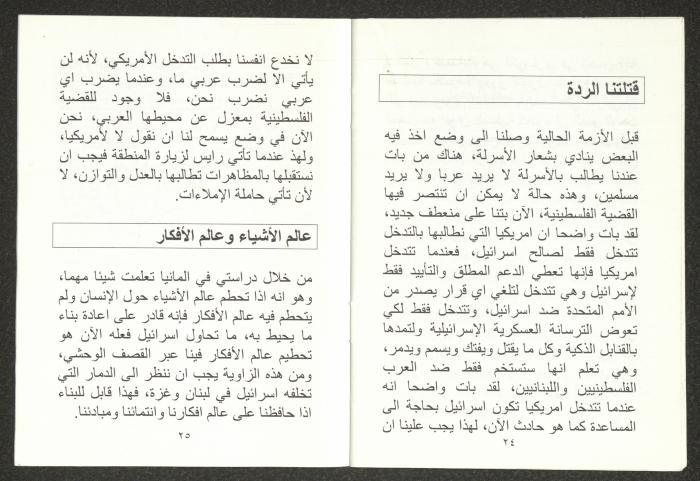 قتلتنا الردة
قبل الأزمة الحالية وصلنا الى وضع اخذ فيه
البعض ينادي بشعار الأسرلة، هناك من بات
عندنا يطالب بالأسرلة لا يريد عربا ولا يريد
مسلمين، وهذه حالة لا يمكن ان تنتصر فيها
القضية الفلسطينية، الآن بتنا على منعطف جديد،
لقد بات واضحا ان امريكيا التي نطالبها بالتدخل
تتدخل فقط لصالح اسرائيل، فعندما تتدخل
امريكيا فإنها تعطي الدعم المطلق والتأييد فقط
لإسرائيل وهي تتدخل لتلغي اي قرار يصدر من
الأمم المتحدة ضد اسرائيل، وتتدخل فقط لكي
تعوض الترسانة العسكرية الإسرائيلية ولتمدها
بالقنابل الذكية وكل ما يقتل ويفتك ويسمم ويدمر،
وهي تعلم انها ستستخم فقط ضد العرب
الفلسطينيين واللبنانيين، لقد بات واضحا انه
عندما تتدخل امريكيا تكون اسرائيل بحاجة الى
المساعدة كما هو حادث الآن، لهذا يجب علينا ان
٢٤
لا نخدع انفسنا بطلب التدخل الأمريكي، لأنه لن
يأتي الا لضرب عربي ما، وعندما يضرب اي
عربي نضرب نحن، فلا وجود للقضية
الفلسطينية بمعزل عن محيطها العربي، نحن
الآن في وضع يسمح لنا ان نقول لا لأمريكيا،
ولهذ عندما تأتي رايس لزيارة المنطقة فيجب ان
نستقبلها بالمظاهرات تطالبها بالعدل والتوازن، لا
لأن تأتي حاملة الإملاءات.
عالم الأشياء وعالم الأفكار
من خلال دراستي في المانيا تعلمت شيئا مهما،
وهو انه اذا تحطم عالم الأشياء حول الإنسان ولم
يتحطم فيه عالم الأفكار فإنه قادر على اعادة بناء
ما يحيط به، ما تحاول اسرائيل فعله الآن هو
تحطيم عالم الأفكار فينا عبر القصف الوحشي،
ومن هذه الزاوية يجب ان ننظر الى الدمار التي
تخلفه اسرائيل في لبنان وغزة، فهذا قابل للبناء
اذا حافظنا على عالم افكارنا وانتمائنا ومبادئنا.
٢٥